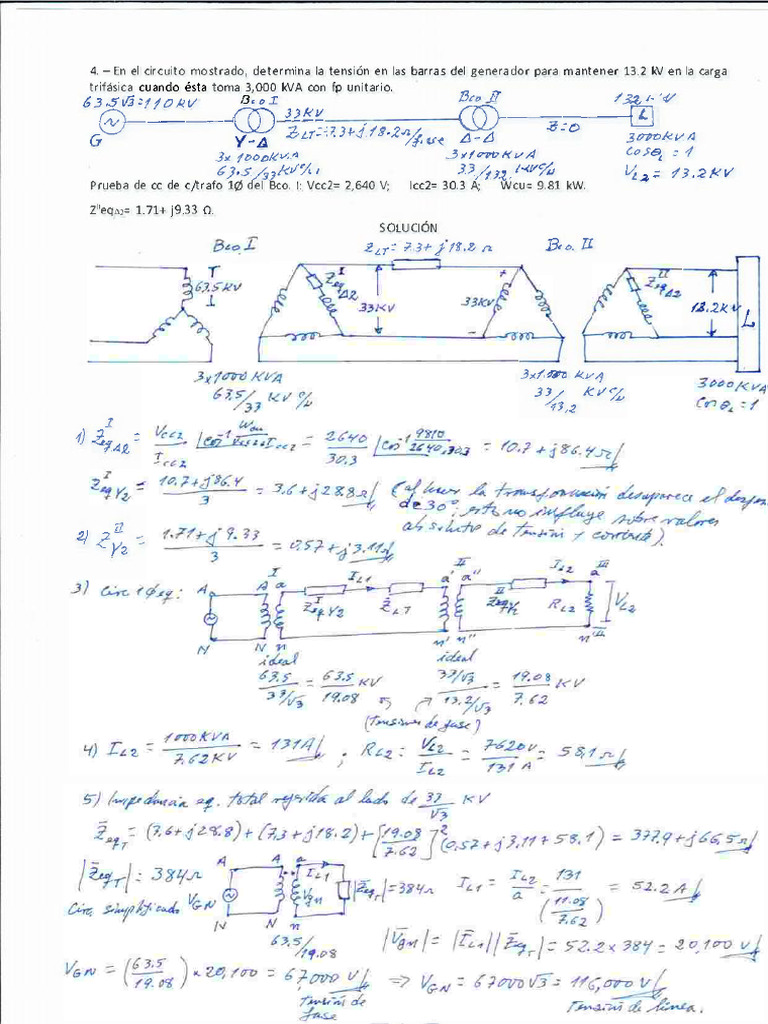 4. – En el circuito mostrado, determina la tensión en las barras del generador para mantener 13.2 kV en la carga
trifásica cuando ésta toma 3,000 kVA con fp unitario.
63.5√3=110 KV Bco I 33KV Bco II 132 KV
G Z_LT=7.3+j18.2Ω/fase Z=0 L
Y-Δ Δ-Δ 3000KVA
3x1000KVA 3x1000KVA Cosθ_L=1
63.5/33 KV c/u 33/132 KV c/u V_L2=13.2KV
Prueba de cc de c/trafo 1Ø del Bco. I: Vcc2= 2,640 V; Icc2= 30.3 A; Wcu= 9.81 kW.
Z"eqΔ2= 1.71+ j9.33 Ω.
SOLUCIÓN
Bco I Z_LT=7.3+j18.2Ω Bco. II
63.5KV Z^I_eqΔ2 33KV 33KV Z^II_eqΔ2 13.2KV L
3x1000 KVA 3x1000 KVA 3000KVA
63.5/33 KV c/u 33/13.2 KV c/u Cosθ_L=1
1) Z^I_eqΔ2 = Vcc2/Icc2 |cos⁻¹ Wcu/Vcc2 Icc2 = 2640/30.3 |cos⁻¹ 9810/2640.303 = 10.7+j86.4Ω
Z^I_eqY2 = 10.7+j86.4/3 = 3.6+j28.8Ω (al hacer la transformación desaparece el
de 30°; esto no influye sobre valores
absolutos de tensión y corriente).
2) Z^II_Y2 = 1.71+j9.33/3 = 0.57+j3.11Ω
3) Circ 1Ø eq: A A I a I_L1 a' II a" I_L2 a III
Z^I_eqY2 Z̄_LT R_L2 V_L2
N N n n' n" n'III
ideal ideal
63.5/33/√3 = 63.5/19.08 KV 33/√3/13.2/√3 = 19.08/7.62 KV
(Tensiones de fase)
4) I_L2 = 1000KVA/7.62KV = 131A ; R_L2 = V_L2/I_L2 = 7620V/131A = 58.1Ω
5) Impedancia eq. total referida al lado de 33/√3 KV
Z̄eq_T = (3.6+j28.8)+(7.3+j18.2)+[19.08/7.62]²(0.57+j3.11+58.1) = 377.9+j66.5Ω
|Z̄eq_T| = 384Ω A A a I_L1 |Z̄eq_T|=384Ω I_L1 = I_L2/a = 131/(19.08/7.62) = 52.2A
Circ. simplificado V_GN V_gn
N N n
63.5/19.08 |V̄gn|=|Ī_L1||Z̄eq_T|=52.2x384=20,100 V
V_GN = (63.5/19.08)x20,100 = 67,000 V ⇒ V_GN = 67000√3 = 116,000 V
Tensión de Tensión de línea.
fase